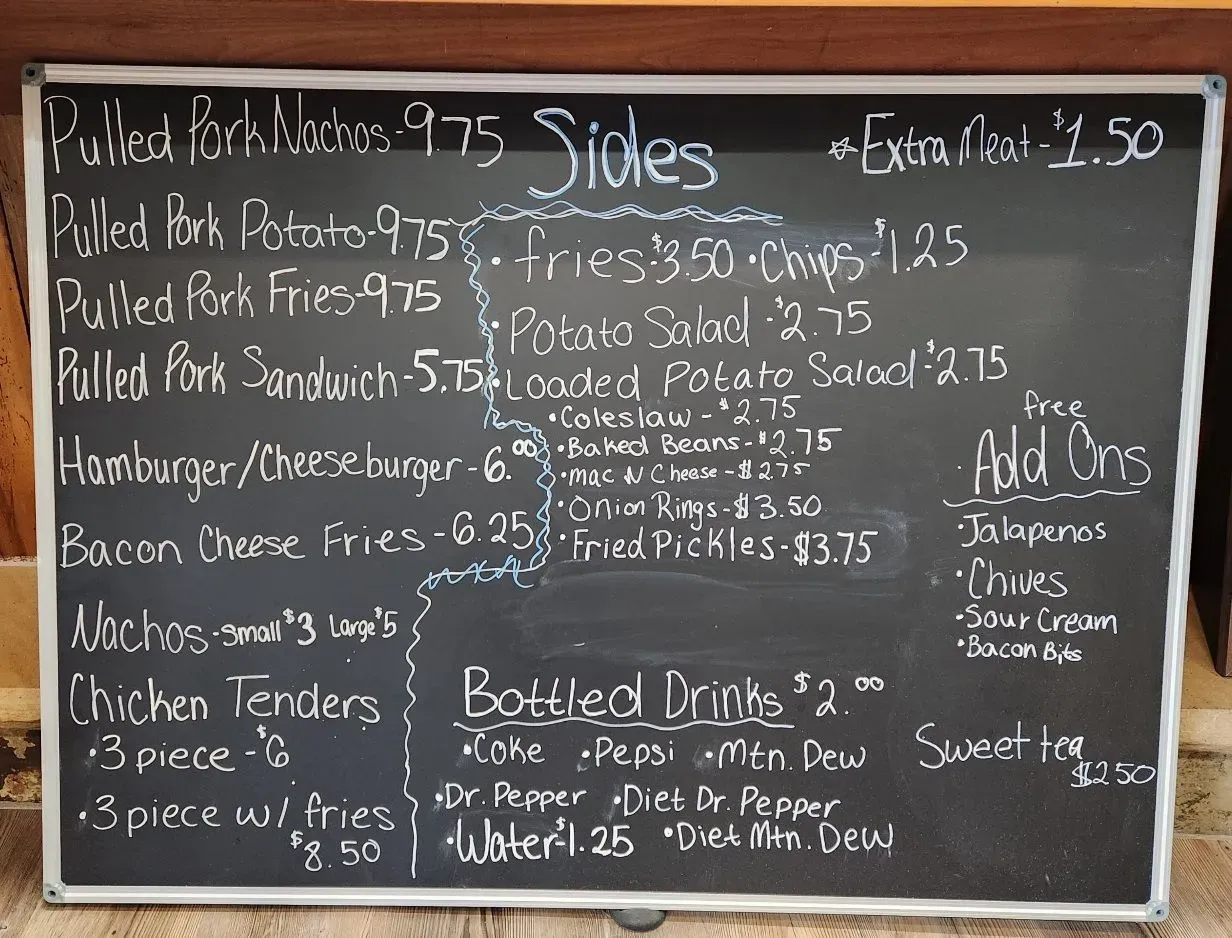 Pulled Pork Nachos-9.75
Pulled Pork Potato-9.75
Pulled Pork Fries-9.75
Pulled Pork Sandwich-5.75
Hamburger/Cheeseburger-6.00
Bacon Cheese Fries-6.25
Nachos-small $3 Large $5
Chicken Tenders
•3 piece-$6
•3 piece w/ fries
$8.50
Sides
•fries-$3.50 •Chips-$1.25
•Potato Salad-$2.75
•Loaded Potato Salad-$2.75
•Coleslaw-$2.75
•Baked Beans-$2.75
•mac N Cheese-$2.75
•Onion Rings-$3.50
•Fried Pickles-$3.75
☆Extra Meat-$1.50
free
Add Ons
•Jalapenos
•Chives
•Sour Cream
•Bacon Bits
Bottled Drinks $2.00
•Coke •Pepsi •Mtn. Dew
•Dr. Pepper •Diet Dr. Pepper
•Water-$1.25 •Diet Mtn. Dew
Sweet tea
$2.50